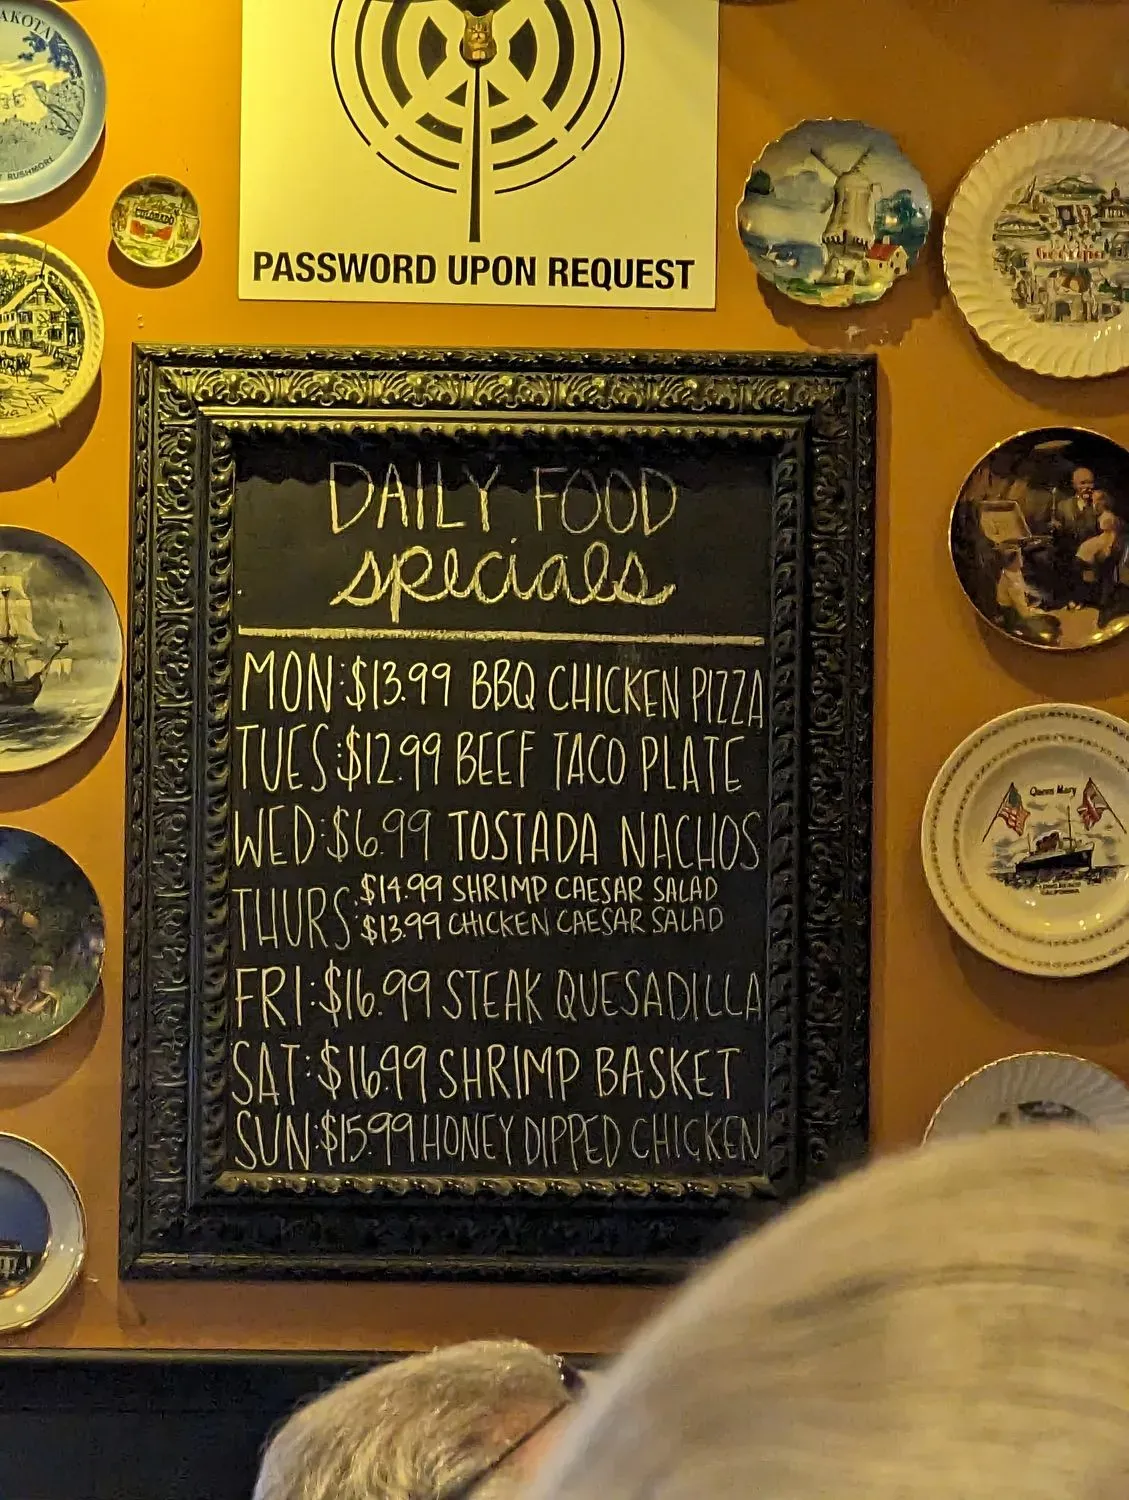 AKOTA
RUSHMORE
COLORADO
PASSWORD UPON REQUEST
DAILY FOOD
specials
MON: $13.99 BBQ CHICKEN PIZZA
TUES: $12.99 BEEF TACO PLATE
WED: $6.99 TOSTADA NACHOS
THURS: $14.99 SHRIMP CAESAR SALAD
$13.99 CHICKEN CAESAR SALAD
FRI: $16.99 STEAK QUESADILLA
SAT: $16.99 SHRIMP BASKET
SUN: $15.99 HONEY DIPPED CHICKEN
Queen Mary
LONG BEACH
CALIFORNIA